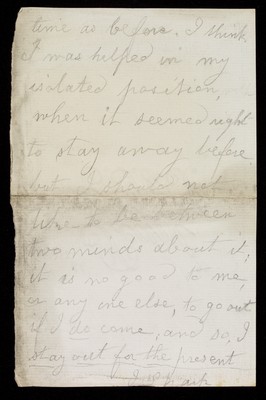 time as before. I think
I was helped in my
isolated position,
when it seemed right
to stay away before
but I should not
like to be between
two minds about it,
it is no good to me,
or any one else, to go out
if I do come, and so, I
stay out for the present